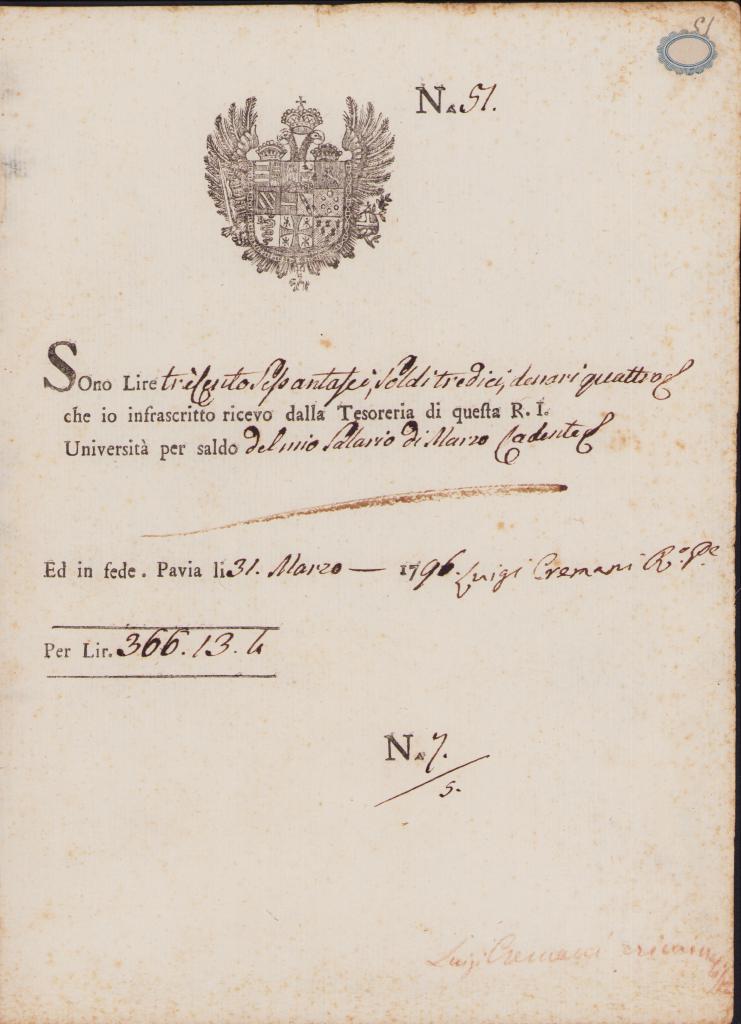 51
N.A 51.
Sono Lire trecento sessantasei, soldi tredici, denari quattro
che io infrascritto ricevo dalla Tesoreria di questa R. I.
Università per saldo del mio salario di Marzo cadente
Ed in fede. Pavia li 31. Marzo — 1796. Luigi Cremani R.o P.e
Per Lir. 366. 13. 4
N.A 7.
5.
Luigi Cremani